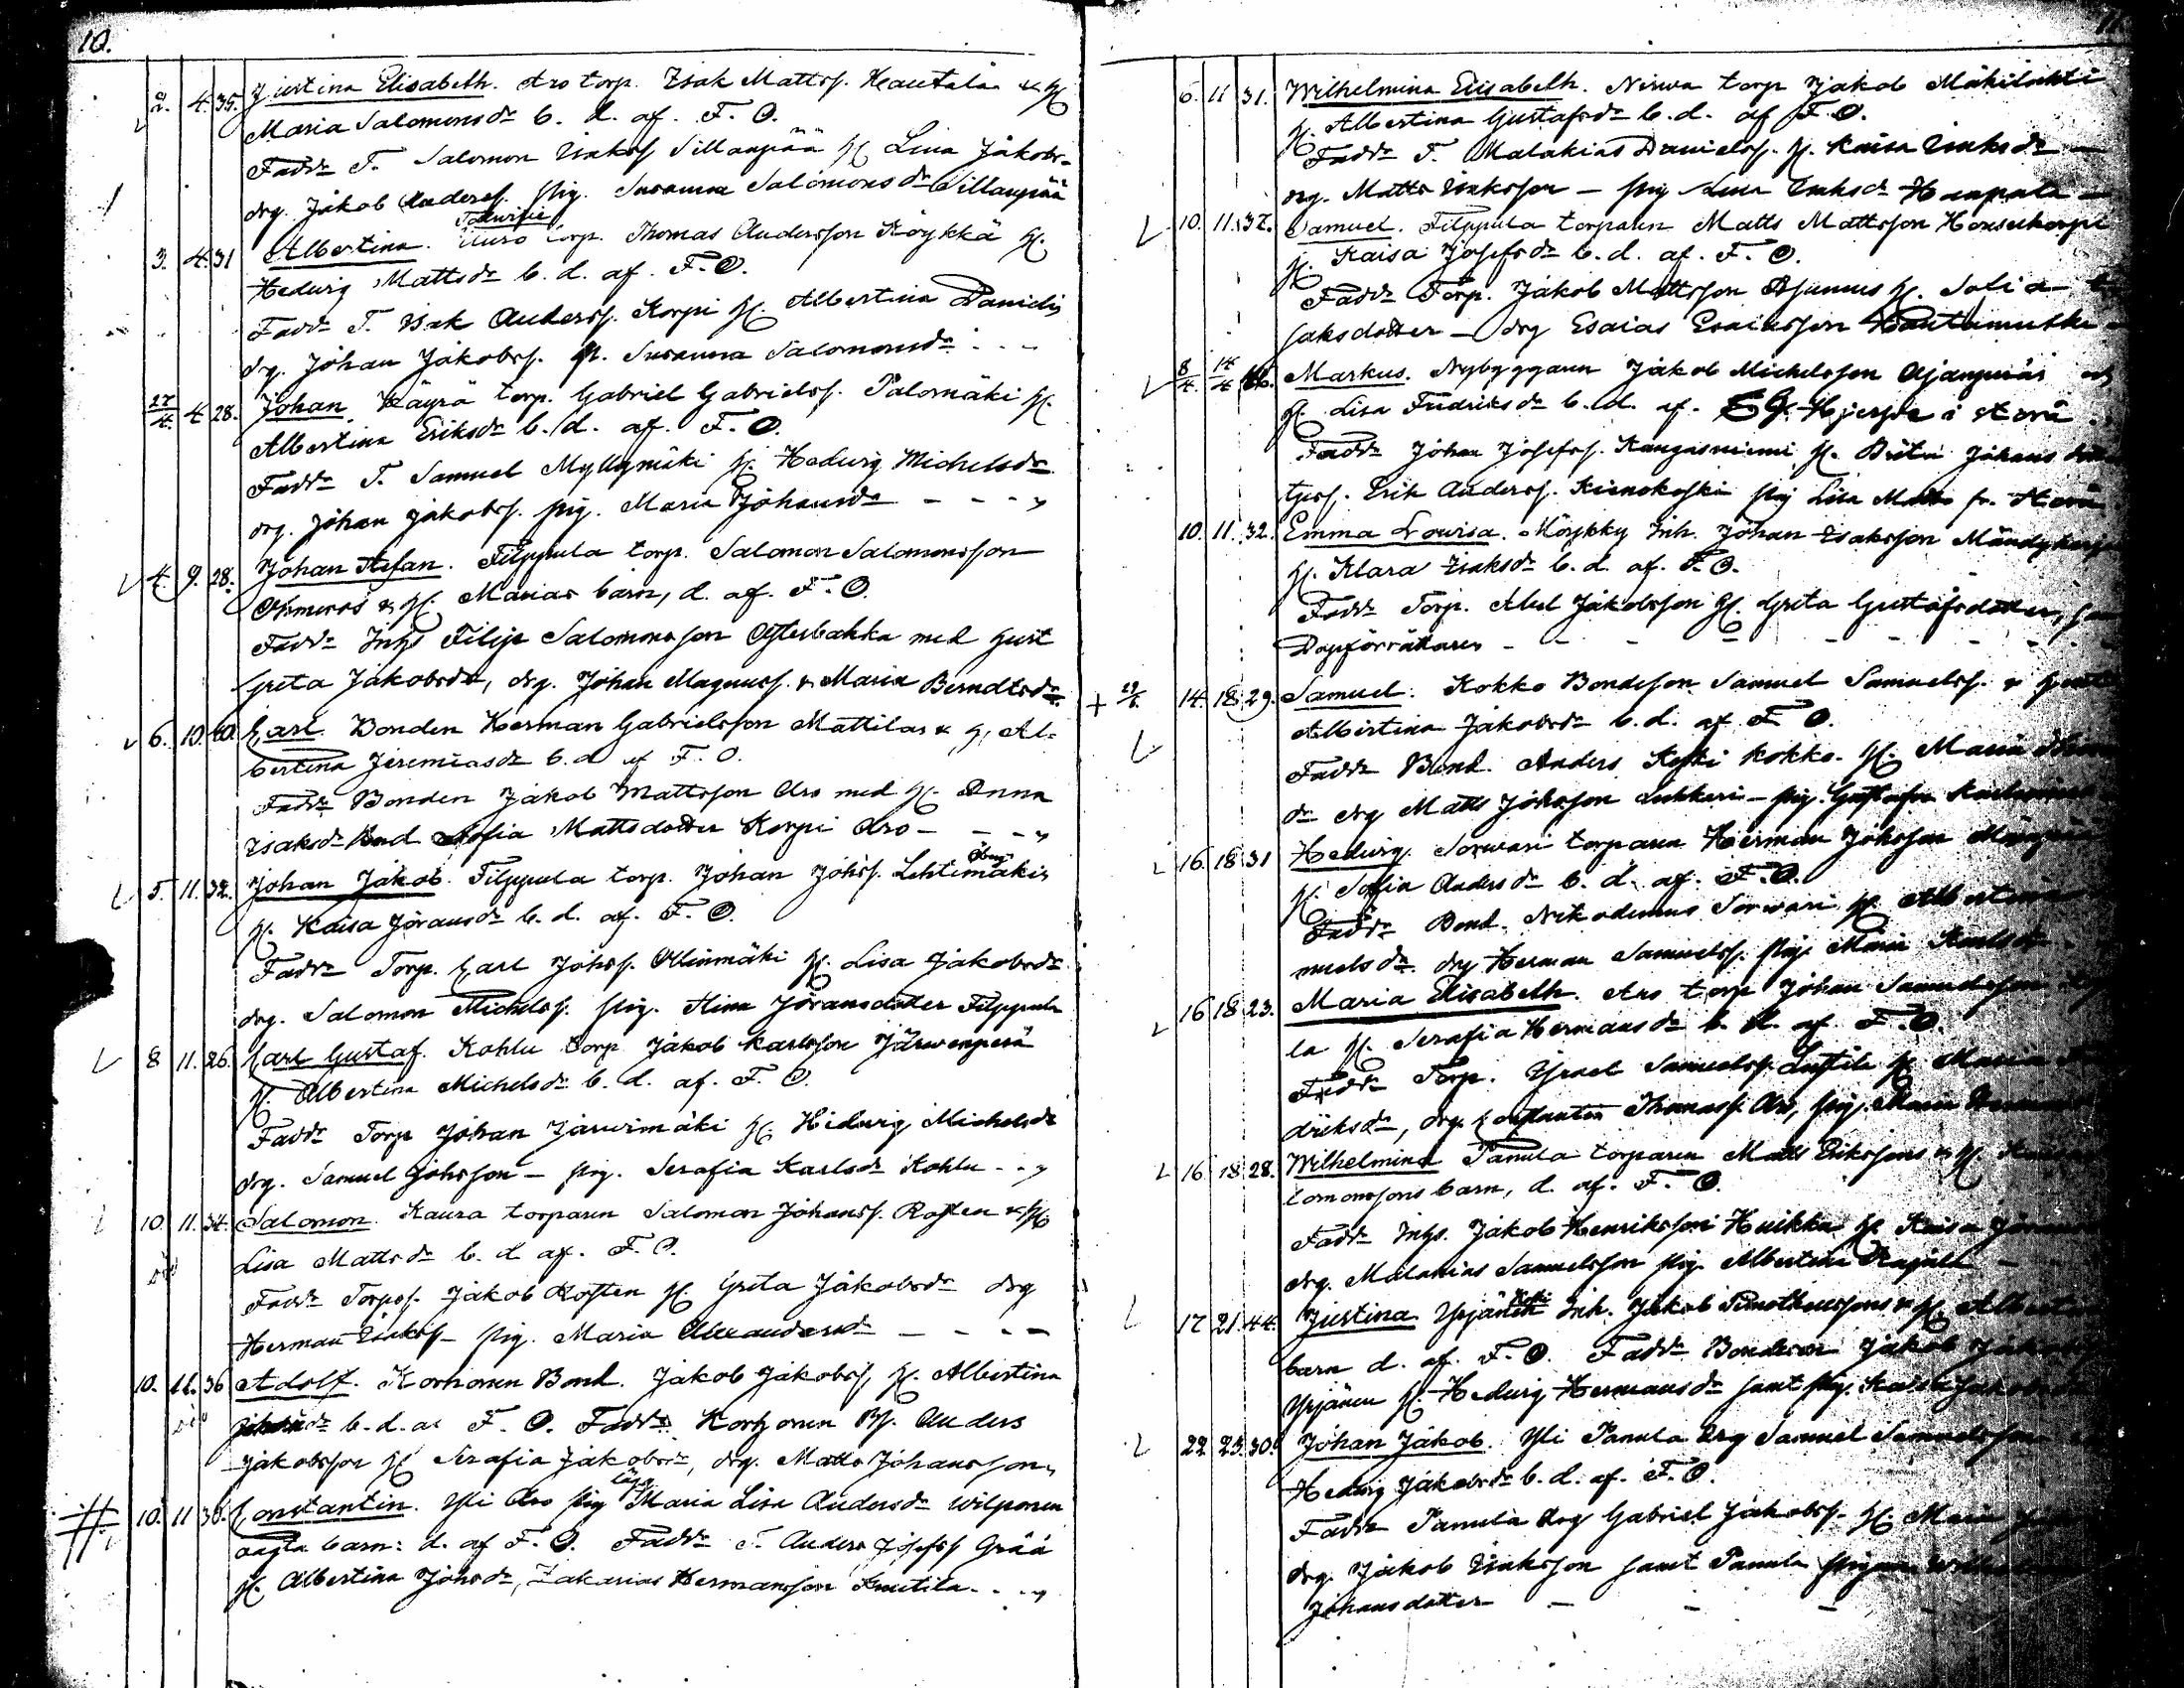 10.
2. 4. 35. Justina Elisabeth. Aro torp. Isak Mattsf. Hautala & H.
Maria Salomonsdr b. d. af. F. O.
Faddr T. Salomon Isaksf Sillanpää H. Lina Jakobs-
drg. Jakob Andersf. pig. Susanna Salomonsdr Sillanpää
3. 4. 31 Albertina. torp. Thomas Andersson Köykkä H.
Hedvig Mattsdr b. d. af. F. O.
Faddr T. Isak Andersf. Korpi H. Albertina Daniels
drg. Johan Jakobsf. p. Susanna Salomonsdr - - -
27/4. 4 28. Johan. Käyrä torp. Gabriel Gabrielsf. Palomäki H.
Albertina Eriksdr b. d. af. F. O.
Faddr T. Samuel Myllymäki H. Hedvig Michelsdr
drg. Johan Jakobsf. pig. Maria Johansdr - - - „
4. 9. 28. Johan Stefan. Filppula torp. Salomon Salomonsson
& H. Marias barn, d. af. F. O.
Faddr Inhs Filip Salomonsson med hust
Greta Jakobsdr, drg. Johan Magnusf. & Maria Berndtsdr
6. 10. 40. Carl. Bonden Herman Gabrielsson Mattilas & H. Al-
bertina Jeremiasdr b. d af F. O.
Faddr Bonden Jakob Mattsson Aro med H. Anna
Isaksdr Bond Sofia Mattsdotter Korpi Aro - - - „
5. 11. 32. Johan Jakob. Filppula torp. Johan Johsf. Lehtimäkis
H. Kaisa Jöransdr b. d. af. F. O.
Faddr Torp. Carl Johsf. Ollinmäki H. Lisa Jakobsdr
drg. Salomon Michelsf. pig. Stina Jöransdotter Filppula
8 11. 26. Carl Gustaf. Kohlu torp Jakob Karlsson Järwenpää
H. Albertina Michelsdr b. d. af. F. O.
Faddr Torp Johan Järwimäki H. Hedvig Michelsdr
drg. Samuel Johsson - pig. Serafia Karlsdr Kohlu - - „
10. 11. 34. Salomon. Kaura torparen Salomon Johansf. Rosten & H.
Lisa Mattsdr b. d. af. F. O.
Faddr Torps. Jakob Rosten H. Greta Jakobsdr drg
Herman Isaksf - pig. Maria Alexandersdr - - - -
10. 11. 36 Adolf. Korhonen Bond. Jakob Jakobsf, H. Albertina
b. d. af F. O. Faddr Korhonen Bf. Anders
Jakobsson H Serafia Jakobsdr, drg. Matts Johansson,
10. 11 38. Constantin. Yli Aro pig Maria Lisa Andersdr Wilponen
oägta barn: d. af F. O. Faddr T. Anders Josefsf Gråå
H. Albertina Johsdr, Zakarias Hermansson Knutila - - „
11.
6. 11 31. Wilhelmina Elisabeth. Nirwa torp Jakob Mäkilahti
H. Albertina Gustafsdr b. d. af F. O.
Faddr T. Malakias Danielsf. H. Kaisa Isaksdr -
drg. Matts Isaksson - pig Lena Isaksdr Haapala -
10. 11. 32. Samuel. Filppula torparen Matts Mattsson
H. Kaisa Josefsdr b. d. af. F. O.
Faddr Torp. Jakob Mattsson H. Sofia
Jaksdotter - drg Esaias Esaiasson Hautamutka
8/4. 14/4 Markus. Nybyggaren Jakob Michelsson Ajanpääs och
H. Lisa Fredriksdr b. d. af. Hjerpe i Etseri
Faddr Johan Josefsf. Kangasniemi H. Brita Johans
Erik Andersf. Kienokoski pig Lisa Matts fr. Etseri
10. 11. 32. Emma Lovisa. Möykky Inh. Johan Isaksson
H. Klara Isaksdr b. d. af. F. O.
Faddr Torp. Abel Jakobsson H. Greta Gustafsdotter,
Dopförrättaren - - - - - -
+ 14. 18. 29. Samuel. Kokko Bondeson Samuel Samuelsf. &
Albertina Jakobsdr b. d. af F. O.
Faddr Bond. Anders Keski Kokko. H. Maria
dr drg Matts Johsson Lukkari - pig.
16. 18. 31 Hedvig. Sorwari torparen Herman Johsson
H. Sofia Andersdr b. d. af. F. O.
Faddr Bond. Nikodemus Sorwari H. Albertina
muelsdr. drg Herman Samuelsf. pig. Maria Karlsdr
16 18. 23. Maria Elisabeth. Aro torp Johan Samuelsson
la H. Serafia Hermansdr b. d. af F. O.
Faddr Torp. Israel Samuelsf. H. Maria
driksdr, drg. Constantin Thomasf. Aro, pig. Maria
16 18. 28. Wilhelmina Panula torparen Matts Erikssons & H.
lomonssons barn, d. af. F. O.
Faddr Inhs. Jakob Henriksson Huikka H. Kaisa
drg. Malakias Samuelsson pig. Albertina
17 21. 44. Justina Yrjänen Inh. Jakob Timotheussons & H.
barn d. af. F. O. Faddr Bondeson Jakob
Yrjänen H. Hedvig Hermansdr samt pig. Kaisa
22 25. 30. Johan Jakob. Yli Panula drg Samuel Samuelsson
Hedvig Jakobsdr b. d. af. F. O.
Faddr Panula drg Gabriel Jakobsf. H. Maria
drg. Jakob Isaksson samt Panula pigan
Johansdotter - - - -